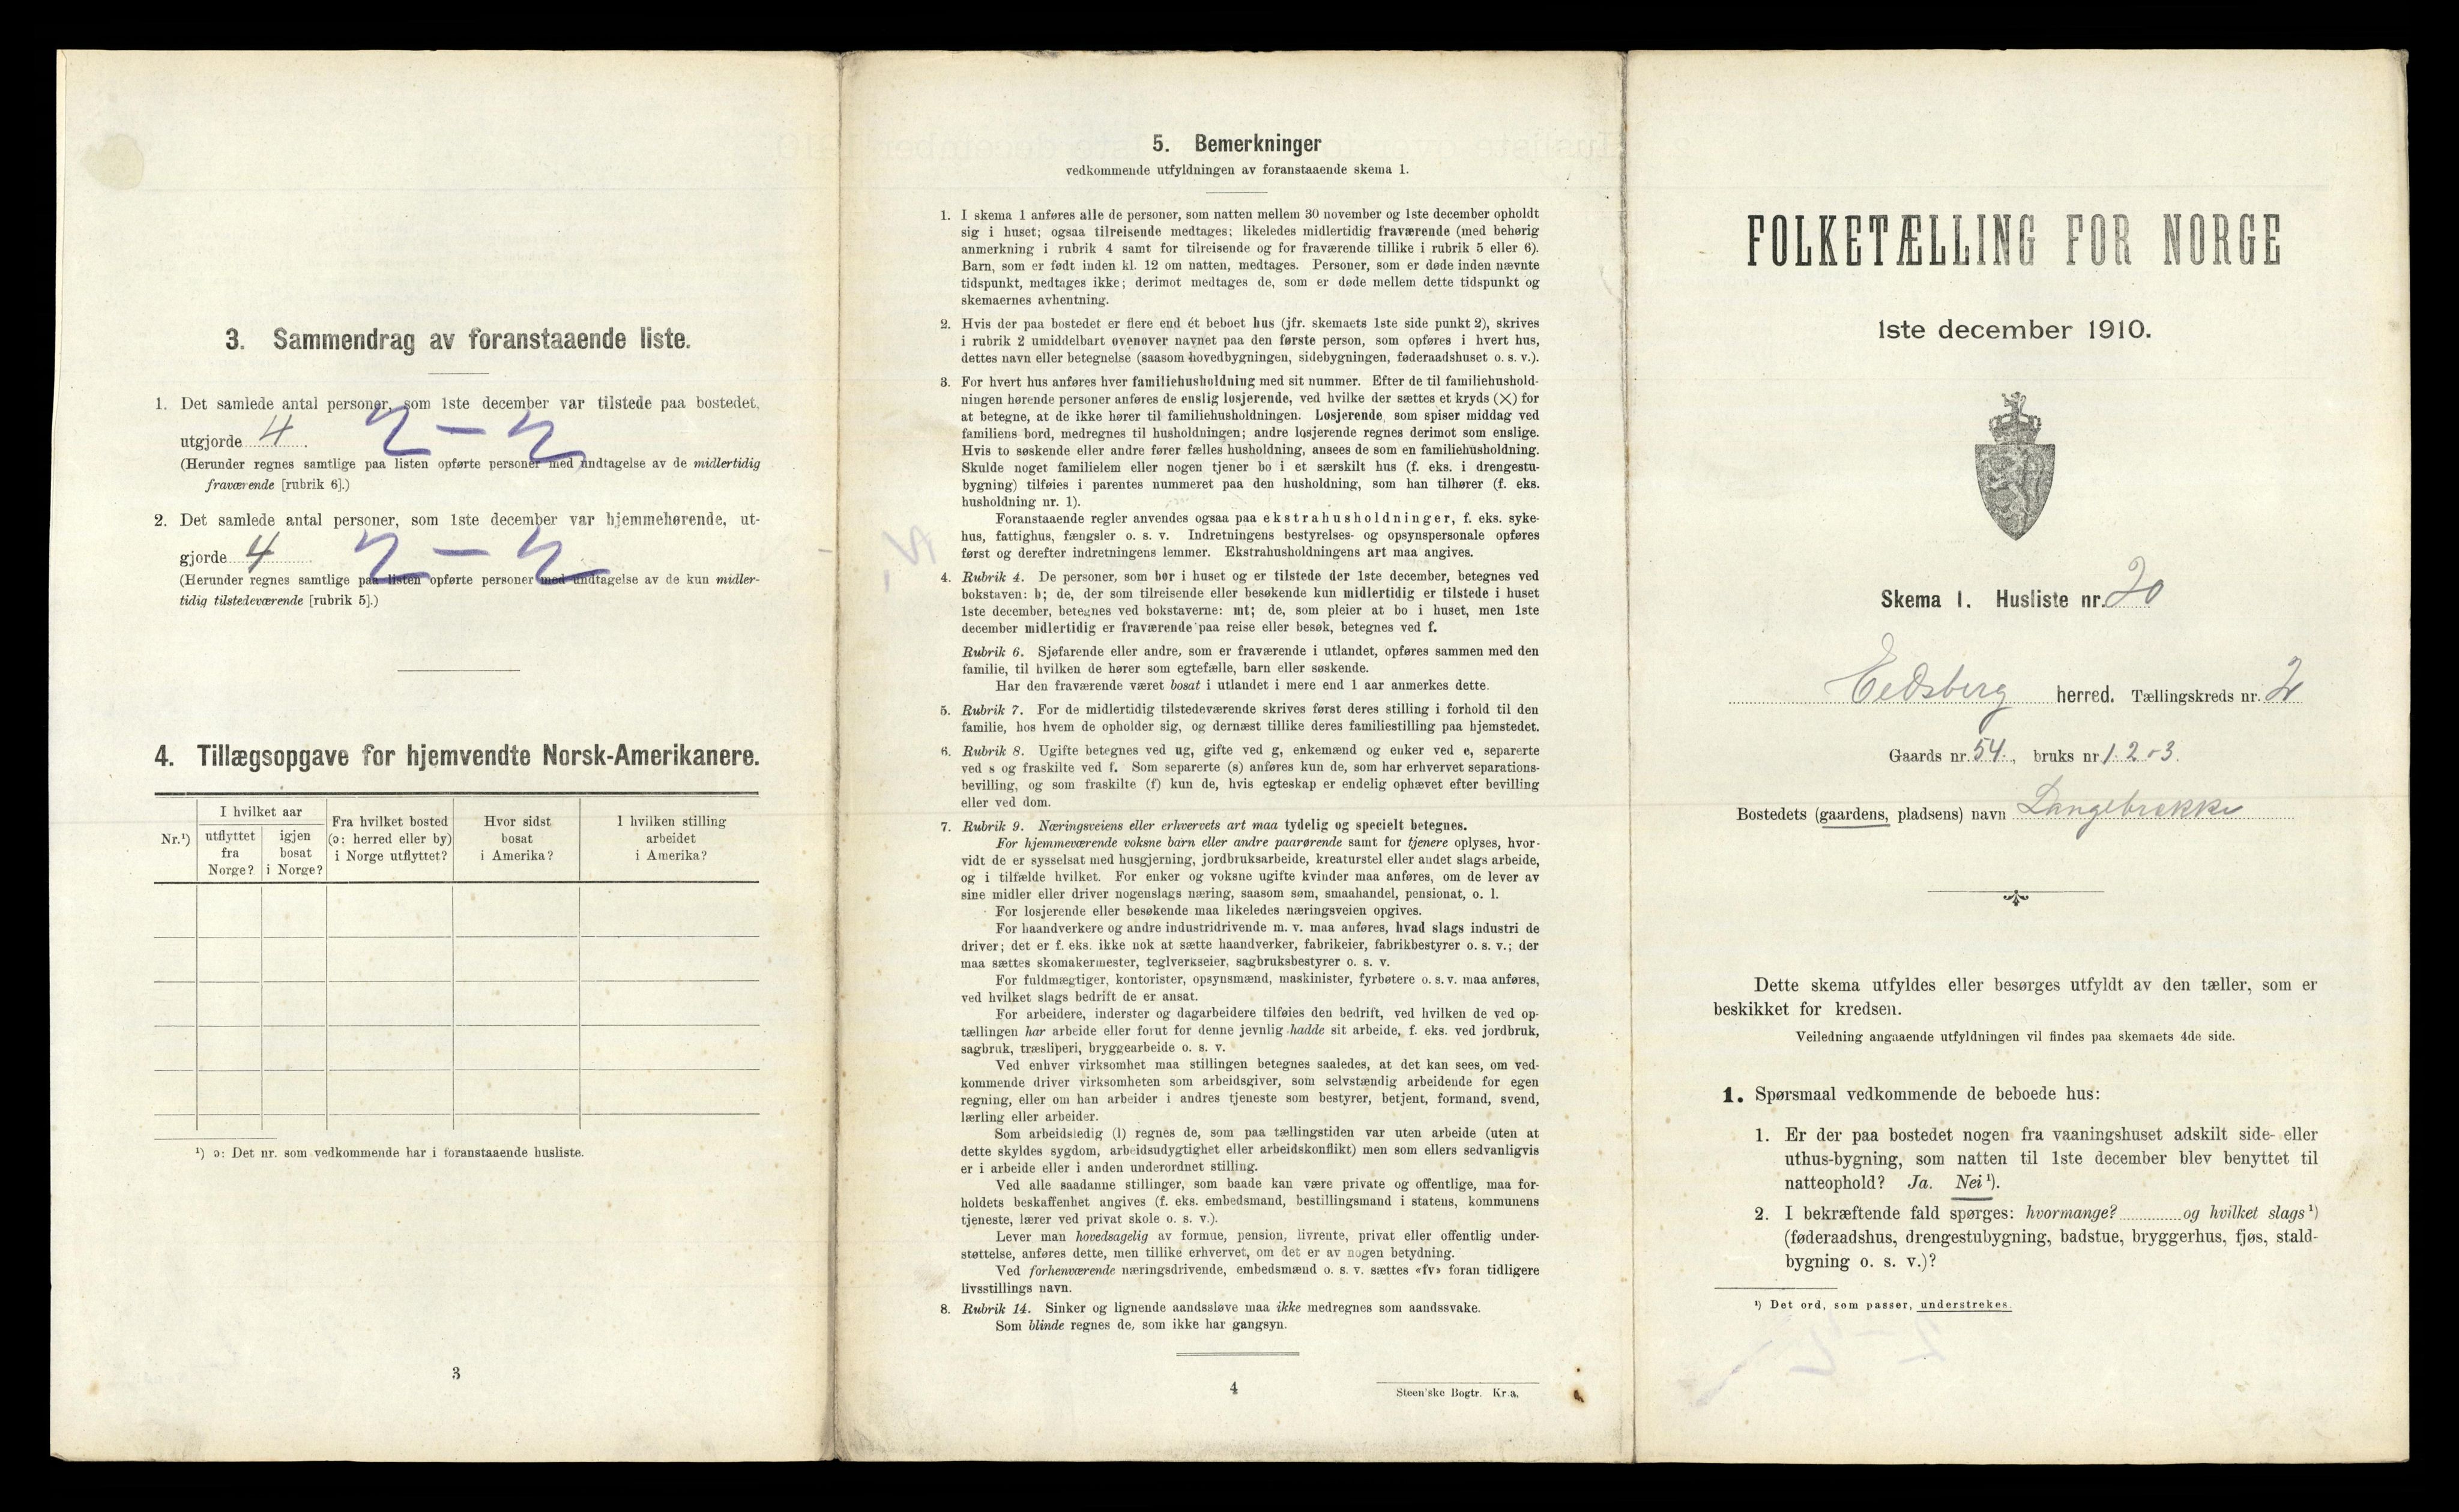 3. Sammendrag av foranstaaende liste.
1. Det samlede antal personer, som 1ste december var tilstede paa bostedet
utgjorde 4. 2 – 2
(Herunder regnes samtlige paa listen opførte personer med undtagelse av de midlertidig
fraværende [rubrik 6].)
2. Det samlede antal personer, som 1ste december var hjemmehørende, ut-
gjorde 4. 2 – 2
(Herunder regnes samtlige paa listen opførte personer med undtagelse av de kun midler-
tidig tilstedeværende [rubrik 5].)
4. Tillægsopgave for hjemvendte Norsk-Amerikanere.
Nr.¹)
I hvilket aar
utflyttet
fra
Norge?
igjen
bosat
i Norge?
Fra hvilket bosted
(ɔ: herred eller by)
i Norge utflyttet?
Hvor sidst
bosat
i Amerika?
I hvilken stilling
arbeidet
i Amerika?
¹) ɔ: Det nr. som vedkommende har i foranstaaende husliste.
3
5. Bemerkninger
vedkommende utfyldningen av foranstaaende skema 1.
1. I skema 1 anføres alle de personer, som natten mellem 30 november og 1ste december opholdt
sig i huset; ogsaa tilreisende medtages; likeledes midlertidig fraværende (med behørig
anmerkning i rubrik 4 samt for tilreisende og for fraværende tillike i rubrik 5 eller 6).
Barn, som er født inden kl. 12 om natten, medtages. Personer, som er døde inden nævnte
tidspunkt, medtages ikke; derimot medtages de, som er døde mellem dette tidspunkt og
skemaernes avhentning.
2. Hvis der paa bostedet er flere end ét beboet hus (jfr. skemaets 1ste side punkt 2), skrives
i rubrik 2 umiddelbart ovenover navnet paa den første person, som opføres i hvert hus,
dettes navn eller betegnelse (saasom hovedbygningen, sidebygningen, føderaadshuset o. s. v.).
3. For hvert hus anføres hver familiehusholdning med sit nummer. Efter de til familiehushold-
ningen hørende personer anføres de enslig losjerende, ved hvilke der sættes et kryds (×) for
at betegne, at de ikke hører til familiehusholdningen. Losjerende, som spiser middag ved
familiens bord, medregnes til husholdningen; andre losjerende regnes derimot som enslige.
Hvis to søskende eller andre fører fælles husholdning, ansees de som en familiehusholdning.
Skulde noget familielem eller nogen tjener bo i et særskilt hus (f. eks. i drengestu-
bygning) tilføies i parentes nummeret paa den husholdning, som han tilhører (f. eks.
husholdning nr. 1).
Foranstaaende regler anvendes ogsaa paa ekstrahusholdninger, f. eks. syke-
hus, fattighus, fængsler o. s. v. Indretningens bestyrelses- og opsynspersonale opføres
først og derefter indretningens lemmer. Ekstrahusholdningens art maa angives.
4. Rubrik 4. De personer, som bor i huset og er tilstede der 1ste december, betegnes ved
bokstaven: b; de, der som tilreisende eller besøkende kun midlertidig er tilstede i huset
1ste december, betegnes ved bokstaverne: mt; de, som pleier at bo i huset, men 1ste
december midlertidig er fraværende paa reise eller besøk, betegnes ved f.
Rubrik 6. Sjøfarende eller andre, som er fraværende i utlandet, opføres sammen med den
familie, til hvilken de hører som egtefælle, barn eller søskende.
Har den fraværende været bosat i utlandet i mere end 1 aar anmerkes dette.
5. Rubrik 7. For de midlertidig tilstedeværende skrives først deres stilling i forhold til den
familie, hos hvem de opholder sig, og dernæst tillike deres familiestilling paa hjemstedet.
6. Rubrik 8. Ugifte betegnes ved ug, gifte ved g, enkemænd og enker ved e, separerte
ved s og fraskilte ved f. Som separerte (s) anføres kun de, som har erhvervet separations-
bevilling, og som fraskilte (f) kun de, hvis egteskap er endelig ophævet efter bevilling
eller ved dom.
7. Rubrik 9. Næringsveiens eller erhvervets art maa tydelig og specielt betegnes.
For hjemmeværende voksne barn eller andre paarørende samt for tjenere oplyses, hvor-
vidt de er sysselsat med husgjerning, jordbruksarbeide, kreaturstel eller andet slags arbeide,
og i tilfælde hvilket. For enker og voksne ugifte kvinder maa anføres, om de lever av
sine midler eller driver nogenslags næring, saasom søm, smaahandel, pensionat, o. l.
For losjerende eller besøkende maa likeledes næringsveien opgives.
For haandverkere og andre industridrivende m. v. maa anføres, hvad slags industri de
driver; det er f. eks. ikke nok at sætte haandverker, fabrikeier, fabrikbestyrer o. s. v.; der
maa sættes skomakermester, teglverkseier, sagbruksbestyrer o. s. v.
For fuldmægtiger, kontorister, opsynsmænd, maskinister, fyrbøtere o. s. v. maa anføres,
ved hvilket slags bedrift de er ansat.
For arbeidere, inderster og dagarbeidere tilføies den bedrift, ved hvilken de ved op-
tællingen har arbeide eller forut for denne jevnlig hadde sit arbeide, f. eks. ved jordbruk,
sagbruk, træsliperi, bryggearbeide o. s. v.
Ved enhver virksomhet maa stillingen betegnes saaledes, at det kan sees, om ved-
kommende driver virksomheten som arbeidsgiver, som selvstændig arbeidende for egen
regning, eller om han arbeider i andres tjeneste som bestyrer, betjent, formand, svend,
lærling eller arbeider.
Som arbeidsledig (l) regnes de, som paa tællingstiden var uten arbeide (uten at
dette skyldes sygdom, arbeidsudygtighet eller arbeidskonflikt) men som ellers sedvanligvis
er i arbeide eller i anden underordnet stilling.
Ved alle saadanne stillinger, som baade kan være private og offentlige, maa for-
holdets beskaffenhet angives (f. eks. embedsmand, bestillingsmand i statens, kommunens
tjeneste, lærer ved privat skole o. s. v.).
Lever man hovedsagelig av formue, pension, livrente, privat eller offentlig under-
støttelse, anføres dette, men tillike erhvervet, om det er av nogen betydning.
Ved forhenværende næringsdrivende, embedsmænd o. s. v. sættes «fv» foran tidligere
livsstillings navn.
8. Rubrik 14. Sinker og lignende aandssløve maa ikke medregnes som aandssvake.
Som blinde regnes de, som ikke har gangsyn.
4
Steen'ske Bogtr. Kr.a.
FOLKETÆLLING FOR NORGE
1ste december 1910.
Skema 1. Husliste nr. 20
Eidsberg herred. Tællingskreds nr. 2
Gaards nr. 54., bruks nr 1. 2 o 3.
Bostedets (gaardens, pladsens) navn Langebrekke
Dette skema utfyldes eller besørges utfyldt av den tæller, som er
beskikket for kredsen.
Veiledning angaaende utfyldningen vil findes paa skemaets 4de side.
1. Spørsmaal vedkommende de beboede hus:
1. Er der paa bostedet nogen fra vaaningshuset adskilt side- eller
uthus-bygning, som natten til 1ste december blev benyttet til
natteophold? Ja. Nei ¹).
2. I bekræftende fald spørges: hvormange? og hvilket slags ¹)
(føderaadshus, drengestubygning, badstue, bryggerhus, fjøs, stald-
bygning o. s. v.)?
¹) Det ord, som passer, understrekes.